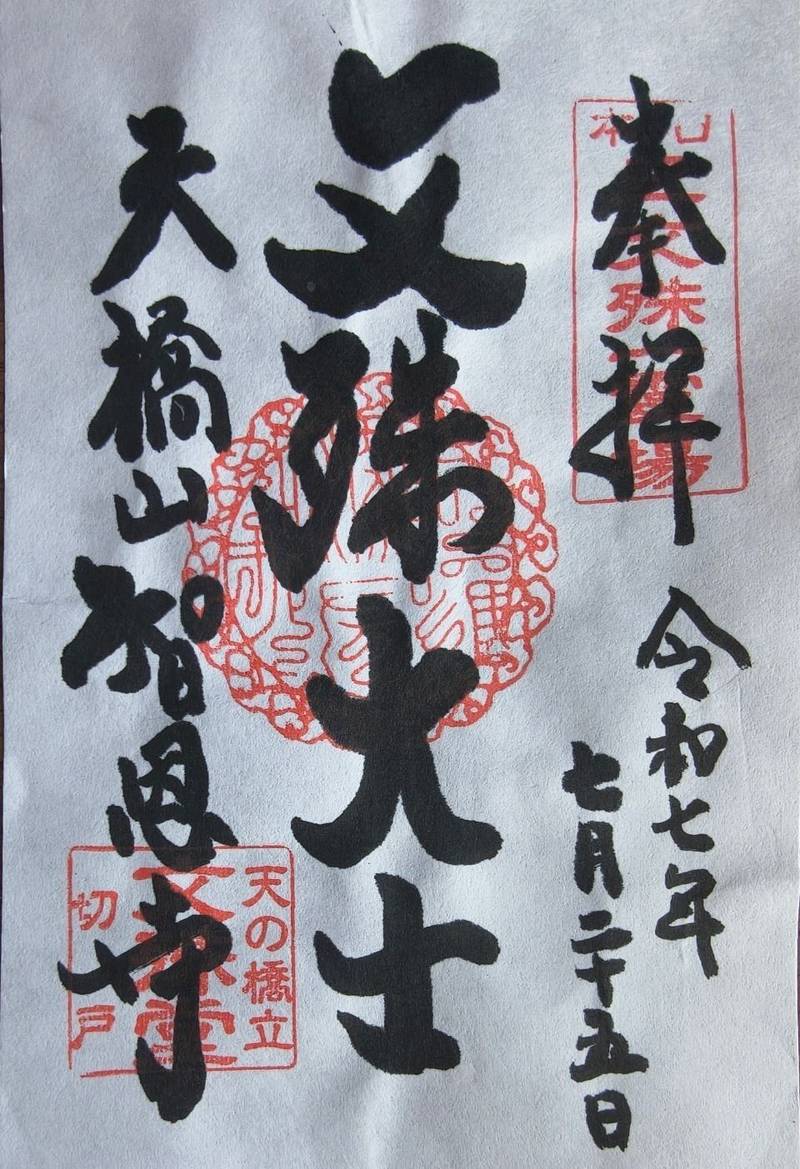 奉拝
令和七年
七月二十五日
文殊大士
天橋山智恩寺
天の橋立
文殊堂
切戸